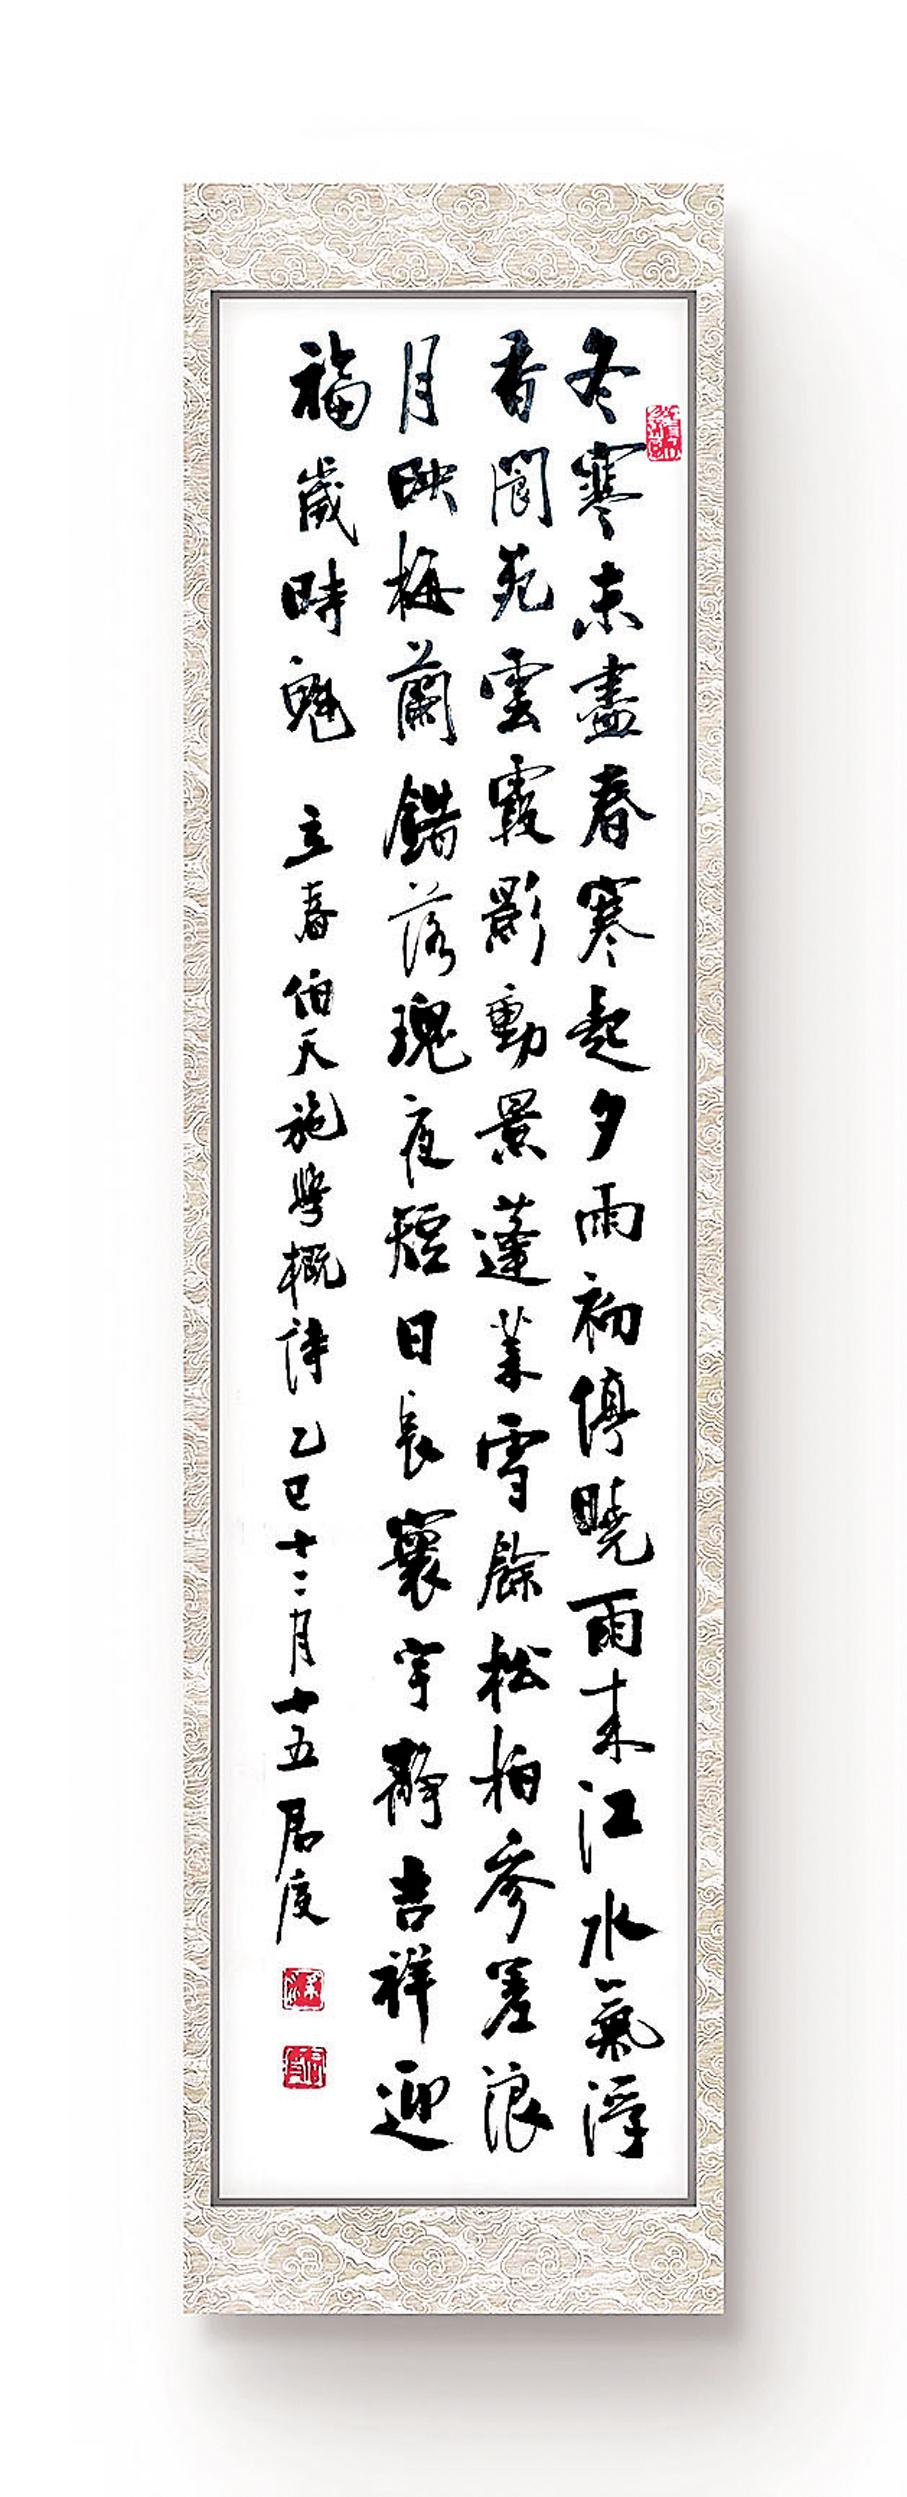 冬寒未盡春寒起夕雨初停曉雨来江水氣浮
香閬苑雲霞影動景蓬萊雪餘松柏參差浪
月映梅蘭錯落瑰夜短日長寰宇靜吉祥迎
福歲時魁 立春 伯天施學概詩 乙巳十二月十五 居度